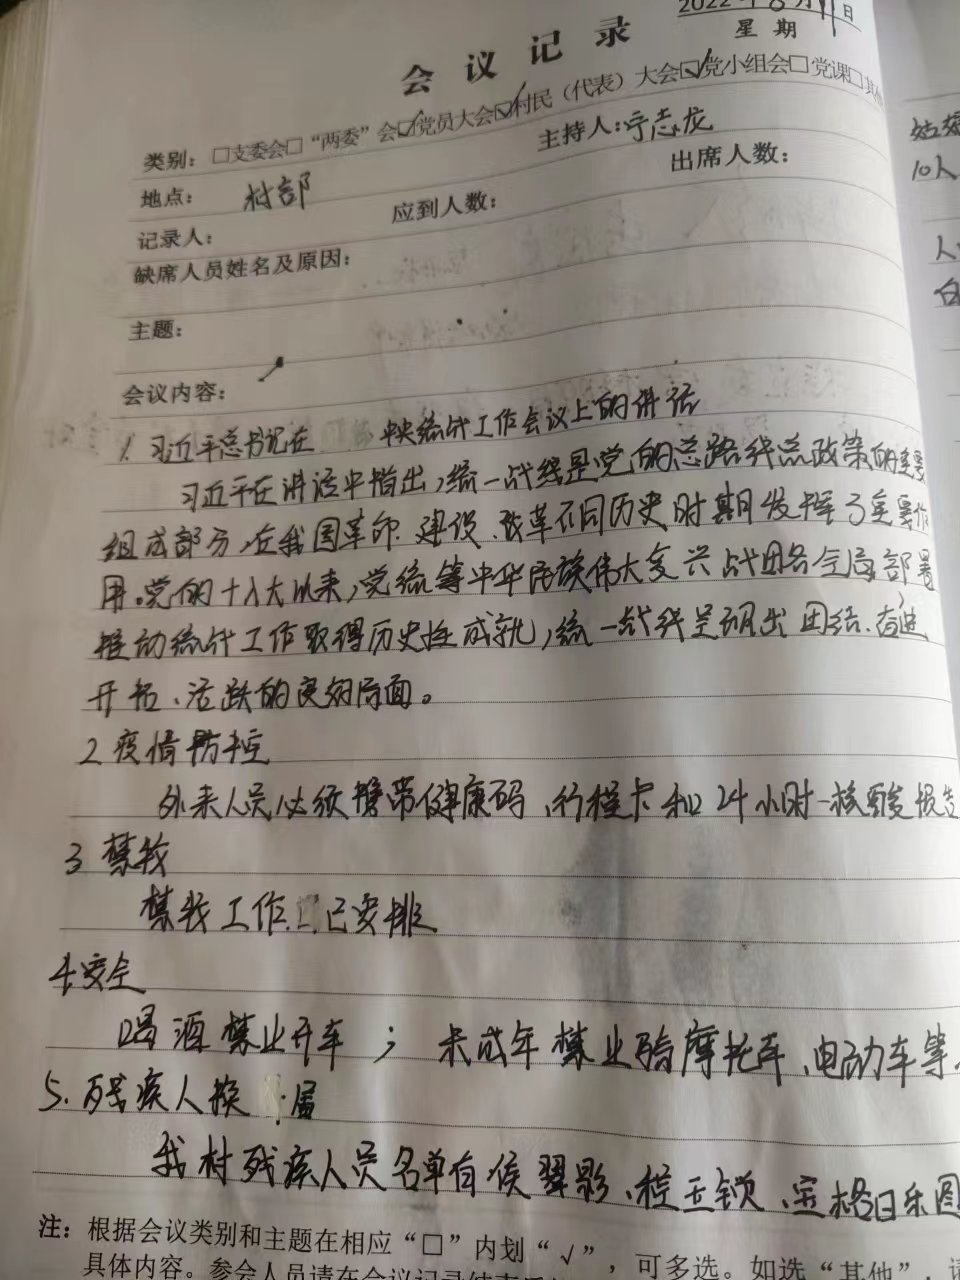 2022年8月11日
星期
会议记录
类别：□支委会□“两委”会☑党员大会☑村民（代表）大会☑党小组会□党课□其他
地点：村部 主持人：宁志龙
记录人： 应到人数： 出席人数：
缺席人员姓名及原因：
主题：
会议内容：
1. 习近平总书记在 中央统计工作会议上的讲话
习近平在讲话中指出，统一战线是党的总路线总政策的重要
组成部分，在我国革命、建设、改革不同历史时期发挥了重要作
用。党的十八大以来，党统筹中华民族伟大复兴战略全局部署
推动统计工作取得历史性成就，统一战线呈现出团结、奋进
开拓、活跃的良好局面。
2 疫情防控
外来人员必须携带健康码、行程卡和24小时一核酸报告
3 禁牧
禁牧工作 已安排
4.安全
喝酒禁止开车；未成年禁止骑摩托车、电动车等.
5.残疾人换 届
我村残疾人员名单有侯翠影、程玉锁、宝格日乐图
注：根据会议类别和主题在相应“□”内划“√”，可多选。如选“其他”，
具体内容。参会人员请在会议记录结束后
姑
10人
人
白